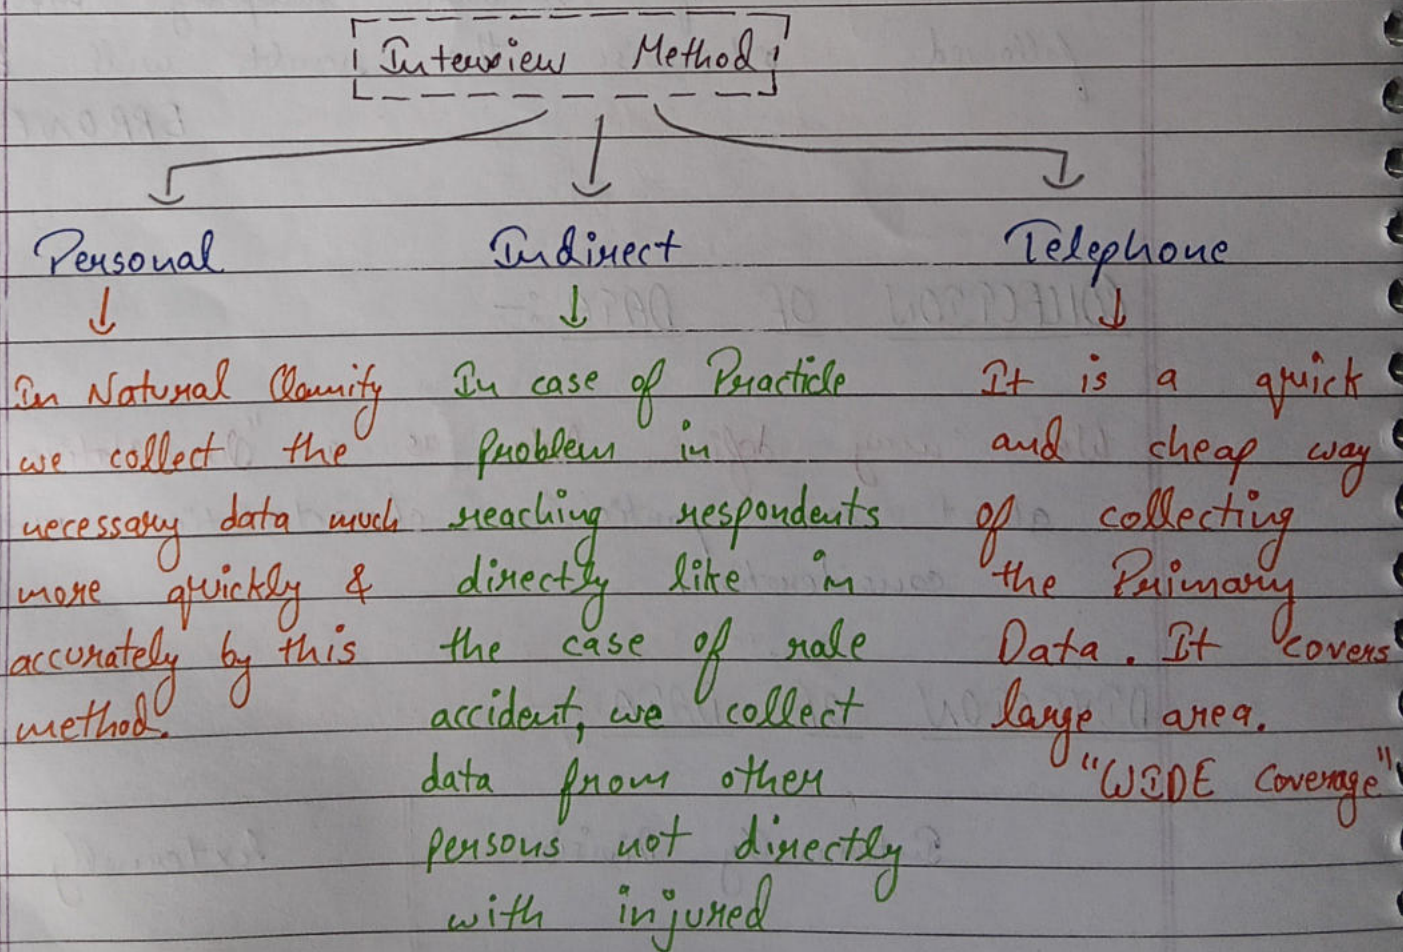 Interview Method
Personal
In Natural Clamity
we collect the
necessary data much
more quickly &
accurately by this
method.
Indirect
In case of Practicle
problem in
reaching respondents
directly like in
the case of rale
accident, we collect
data from other
persons not directly
with injured
Telephone
It is a quick
and cheap way
of collecting
the Primary
Data. It covers
large area.
"WIDE Coverage"